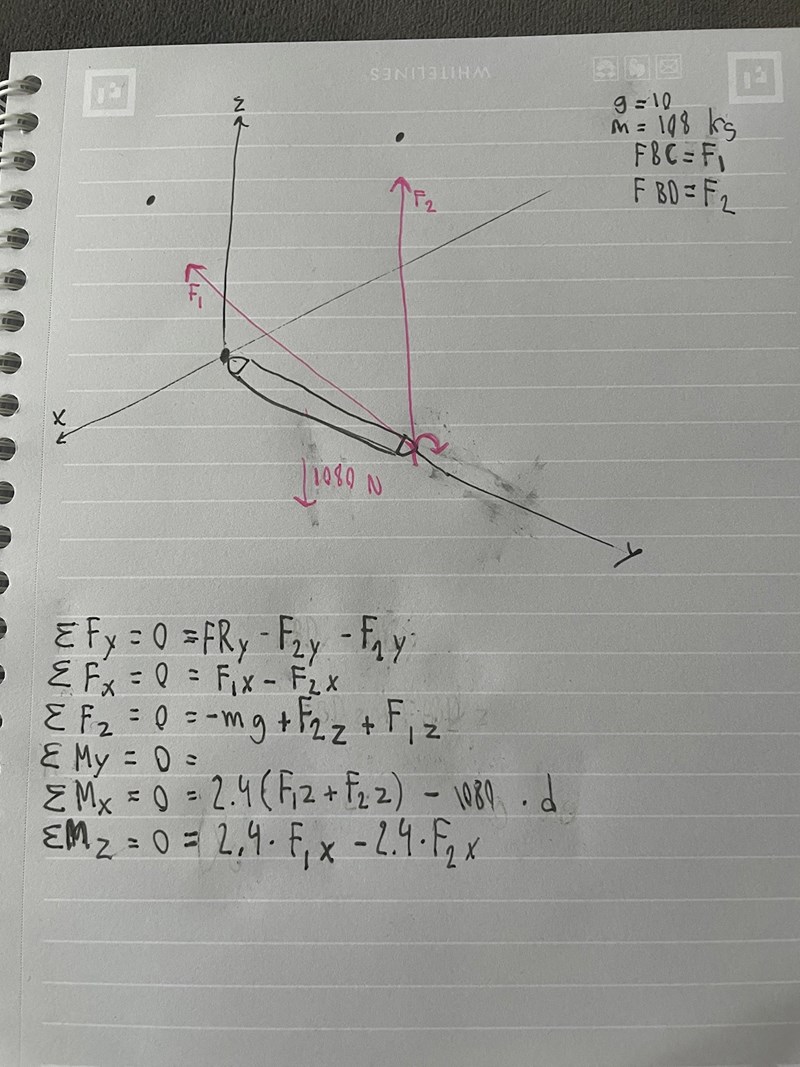 WHITELINES
g = 10
m = 108 kg
FBC = F₁
FBD = F₂
z
F₂
F₁
x
1080 N
y
ΣFy = 0 = FRy - F₂y - F₁y
ΣFx = 0 = F₁x - F₂x
ΣFz = 0 = -mg + F₂z + F₁z
ΣMy = 0 =
ΣMx = 0 = 2.4(F₁z + F₂z) - 1080 · d
ΣMz = 0 = 2.4 · F₁x - 2.4 · F₂x